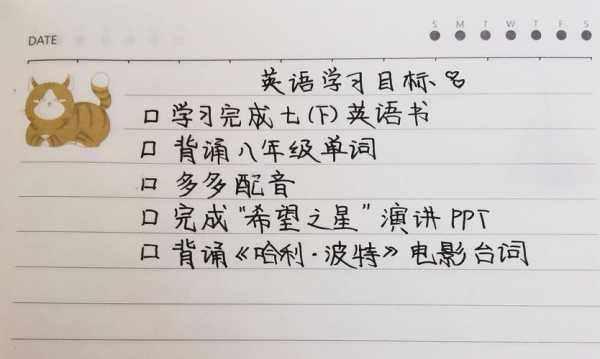 S M T W T F S
DATE
英语学习目标
□ 学习完成七(下)英语书
□ 背诵八年级单词
□ 多多配音
□ 完成“希望之星”演讲PPT
□ 背诵《哈利·波特》电影台词